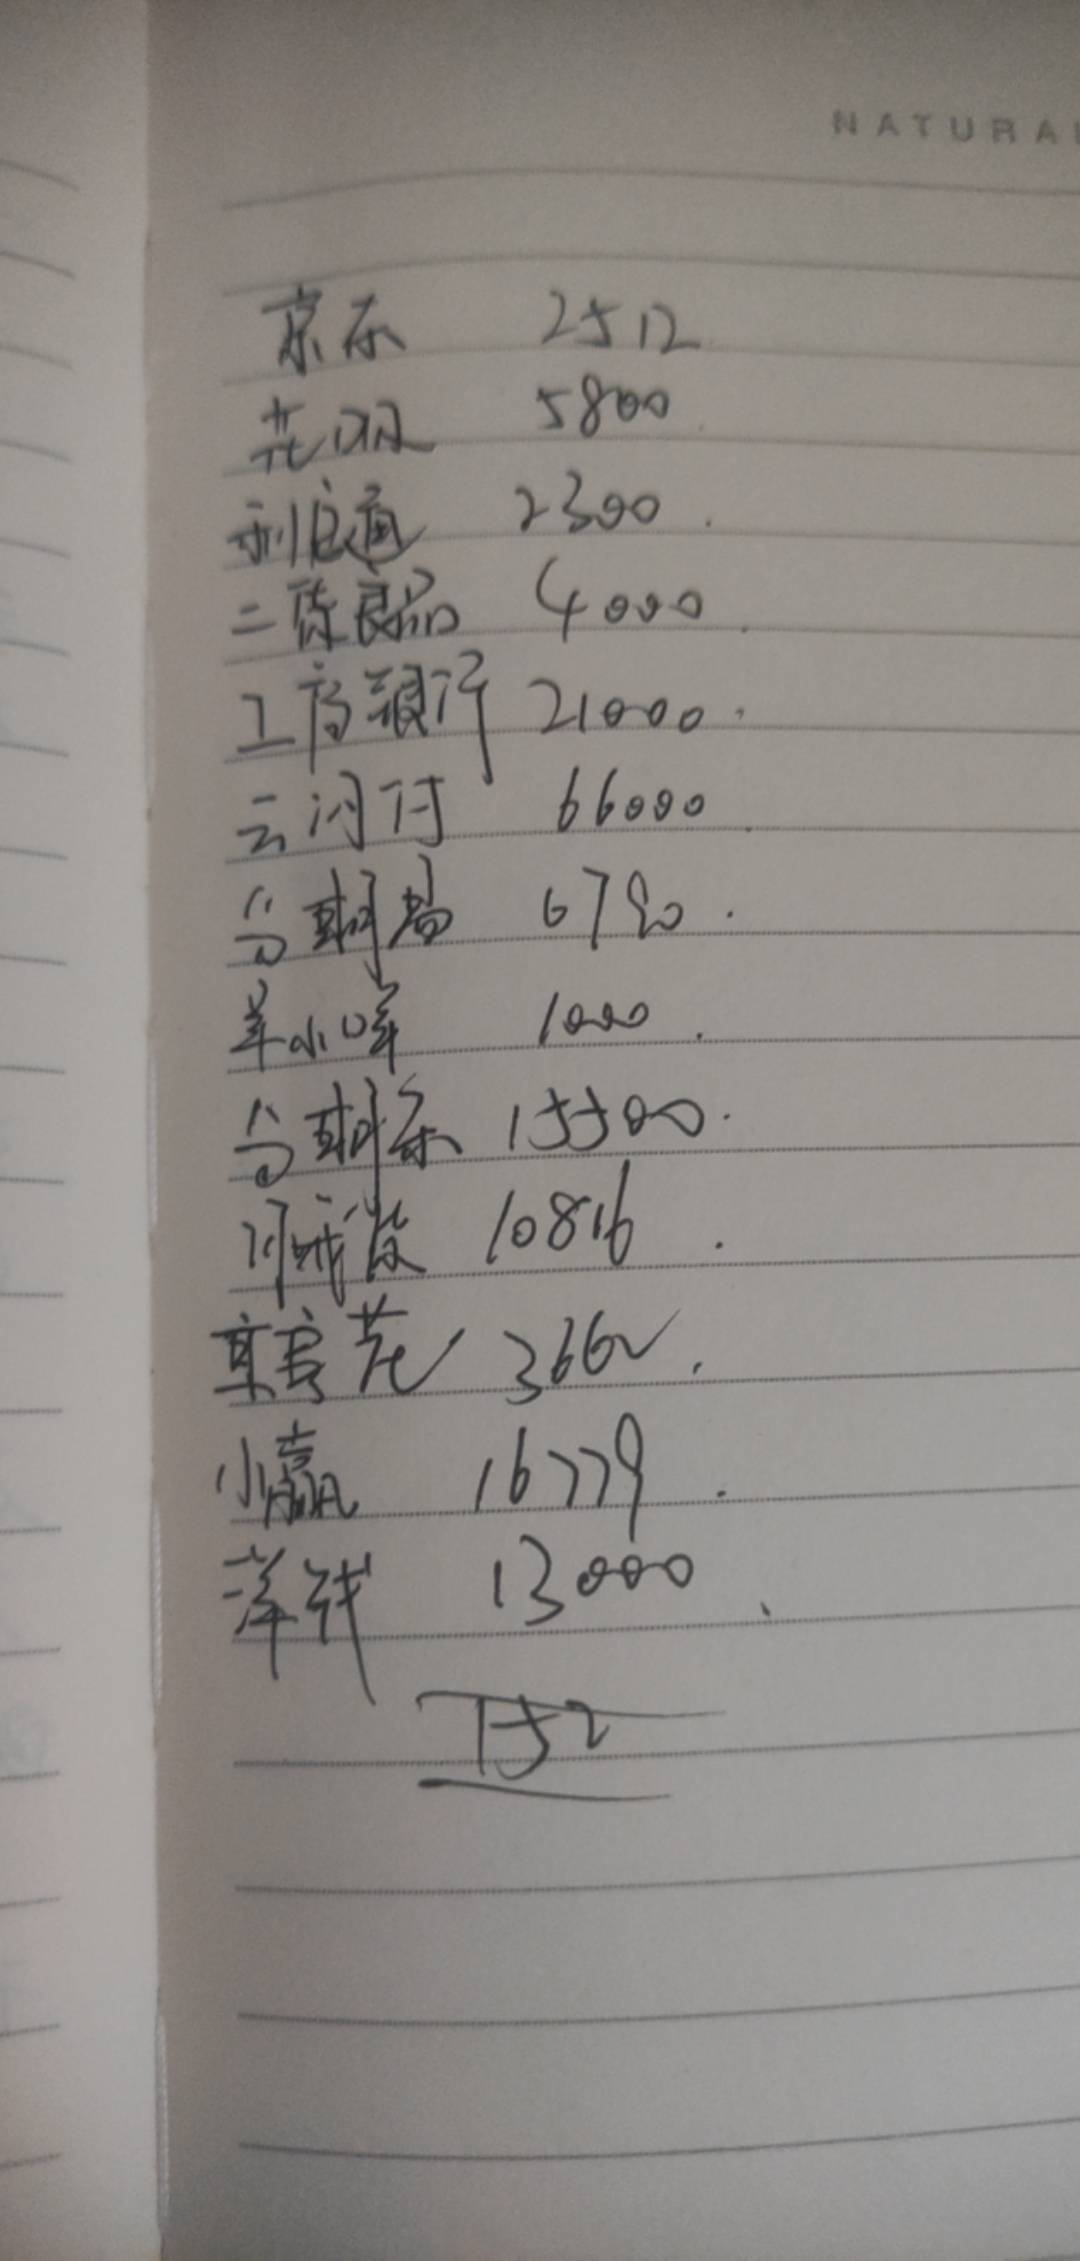 NATURA
京东 2512
花呗 5800
利信通 2300.
二陈良品 4000.
工商银行 21000.
云闪付 66000.
分期易 6790.
羊小咩 1000.
分期乐 15500.
你我贷 10816.
京东花 3662.
小赢 16779.
洋钱 13000.
752